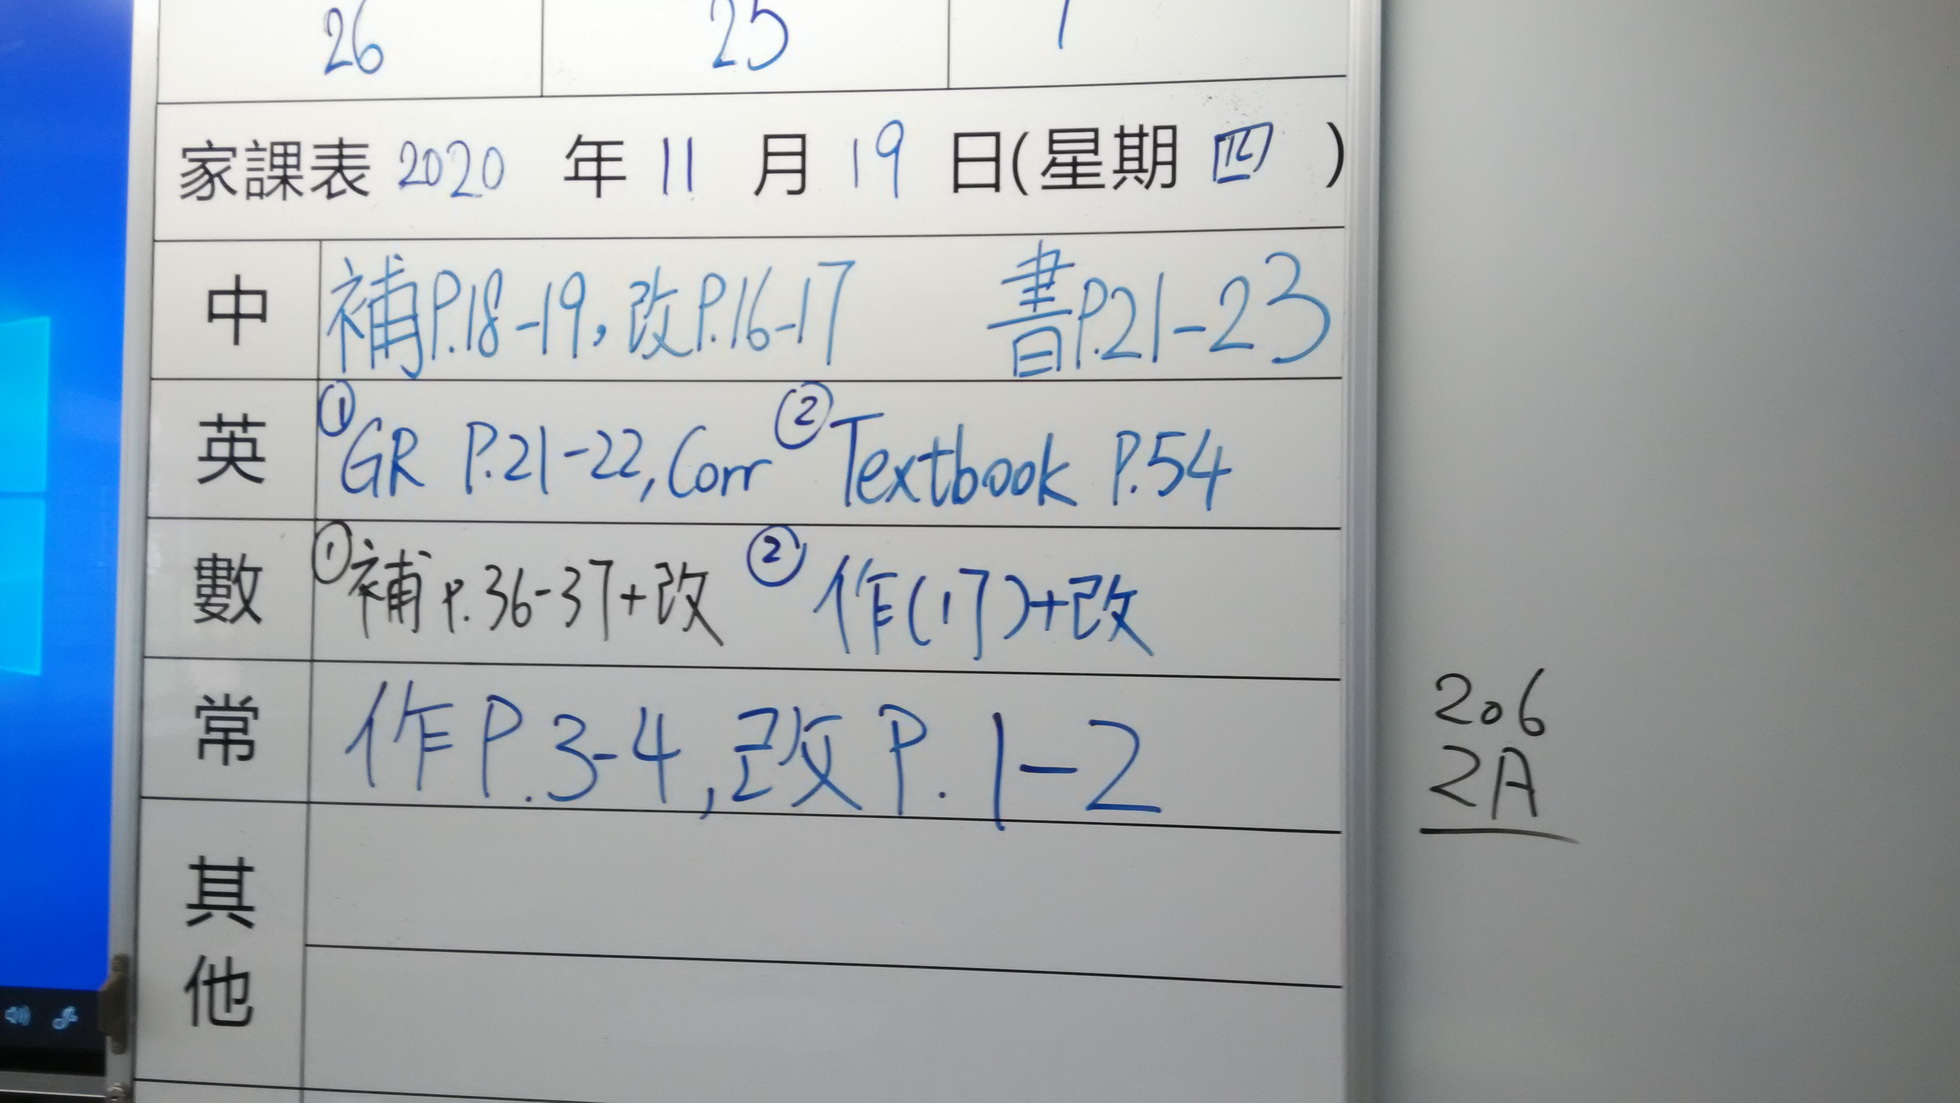 26 25 1
家課表 2020 年 11 月 19 日(星期 四 )
中 補P.18-19, 改P.16-17 書P.21-23
英 ①GR P.21-22, Corr ②Textbook P.54
數 ①補 P.36-37+改 ② 作(17)+改
常 作P.3-4, 改P.1-2
其他
206
2A